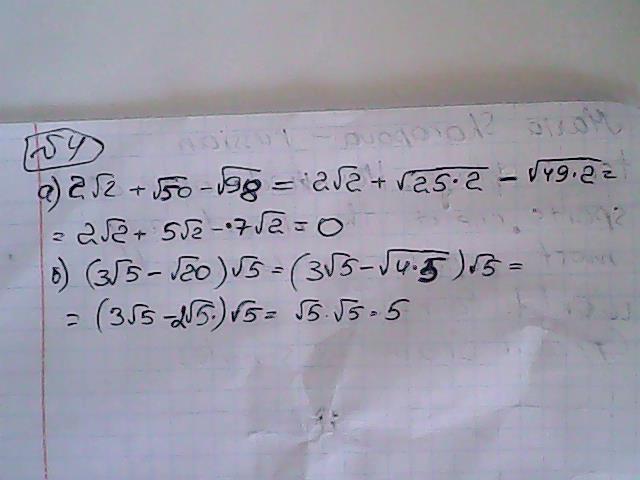 №4
а) 2√2 + √50 - √98 = 2√2 + √25·2 - √49·2 =
= 2√2 + 5√2 - 7√2 = 0
б) (3√5 - √20)√5 = (3√5 - √4·5)√5 =
= (3√5 - 2√5)√5 = √5·√5 = 5